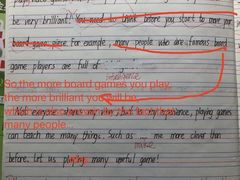 be very brilliant! You need to think before you start to move your
board game piece for example, many people who are famous board
game players are full of
intelligence
So the more board games you play,
the more brilliant you will be.
Not everyone shares my view, but in my experience, playing games
many people...
can teach me many things. Such as me more clever than
make
before. Let us playing many useful game!